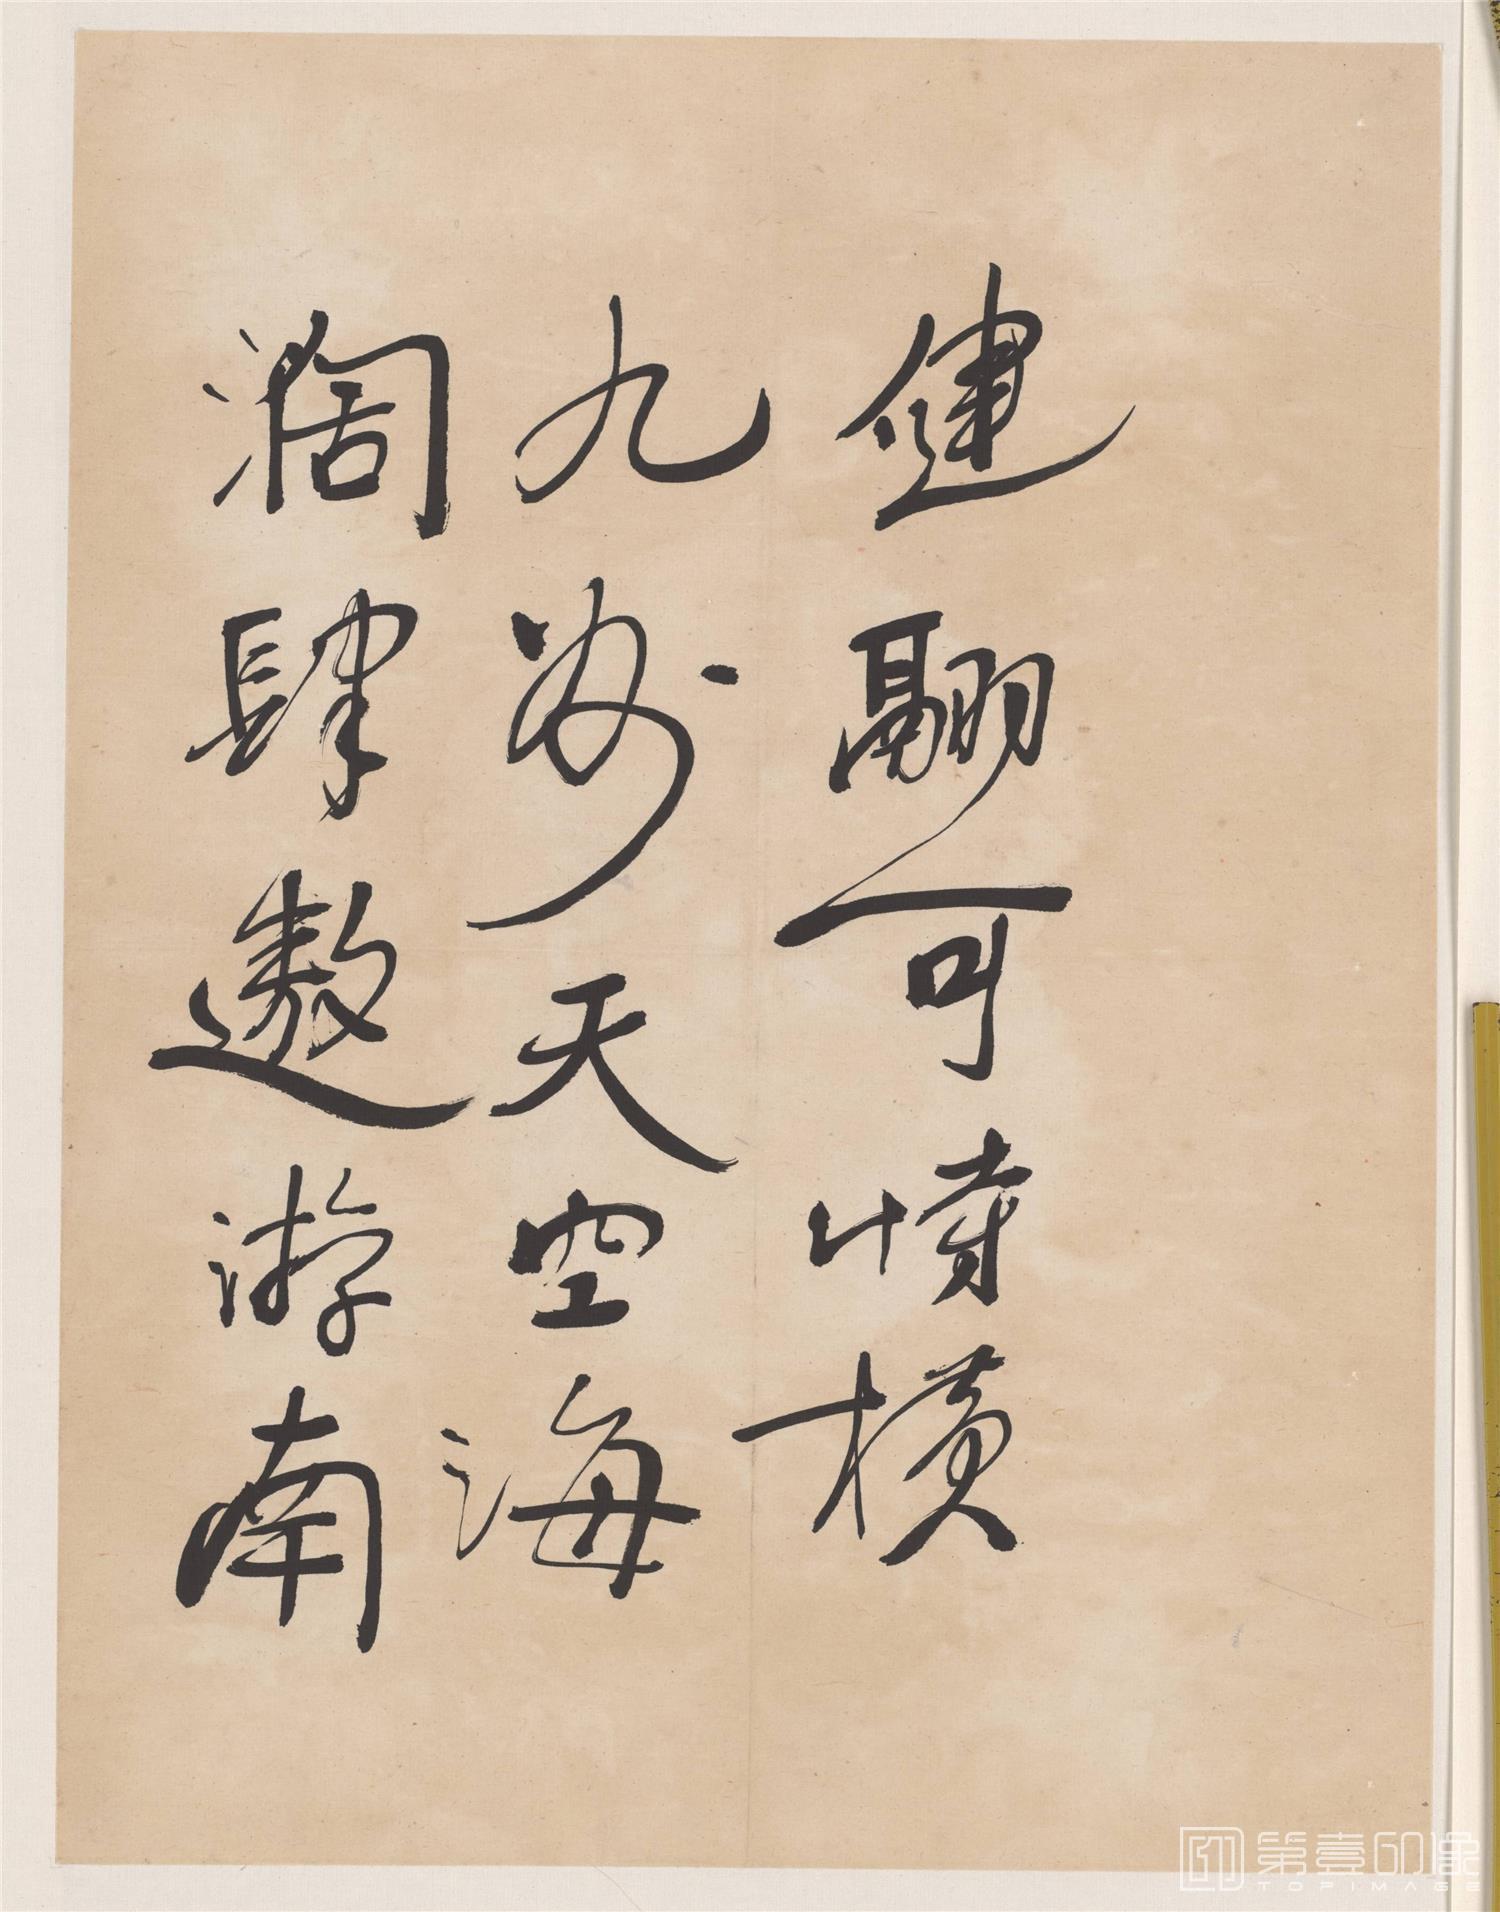 健翮可恃橫
九州天空海
濶肆遨游南
第壹印像
TOPIMAGE